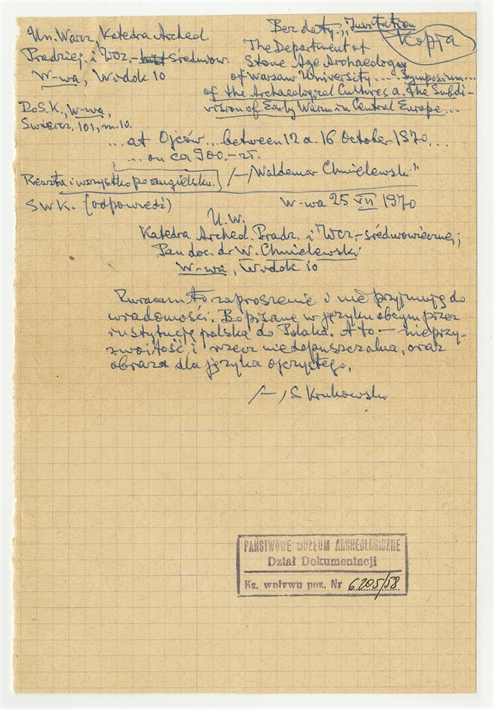 Un. Warz, Katedra Arched.
Pradziej. i Wcz.-średniow.
W-wa, Widok 10
Do S.K., W-wa,
Świercz. 101, m. 10.
Bez daty. „Invitation
Kopia
The Department of
Stone Age Archaeology
of Warsaw University ... Symposium ...
of the Archaeological Cultures a. The Subdi-
vision of Early Würm in Central Europe ...
... at Ojców ... between 12 a 16 October 1970 ...
... on ca 900.- zł.
Reszta i wszystko po angielsku.
/-/ Waldemar Chmielewski"
S W K. (odpowiedź)
W-wa 25 VII 1970
U. W.
Katedra Arched. Pradz. i Wcz.-średniowiecznej;
Pan doc. dr W. Chmielewski
W-wa, Widok 10
Zwracam to zaproszenie i nie przyjmuję do
wiadomości. Bo pisane w języku obcym przez
instytucję polską do Polaka. A to — nieprzy-
zwoitość i rzecz niedopuszczalna, oraz
obraza dla języka ojczystego.
/-/ S. Krukowski
PAŃSTWOWE MUZEUM ARCHEOLOGICZNE
Dział Dokumentacji
Ks. wpływu poz. Nr 6205/58